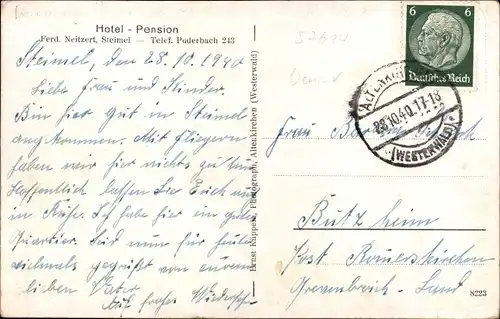 Hotel - Pension
Ferd. Neitzert, Steimel — Telef. Puderbach 243
Steimel, den 28.10.1940
Liebe Frau und Kinder.
Bin hier gut in Steimel
angekommen. Mit Fliegern
haben wir hier nichts zu tun
Hoffentlich lassen Sie Euch auch
in Ruhe. Ich habe hier im guten
Quartier. Seid nun für heute
vielmals gegrüßt von eurem
lieben Vater
Auf frohes Wiedersehn
Ernst Kappes, Photograph, Altenkirchen (Westerwald)
6 6
Deutsches Reich
ALTENKIRCHEN
28.10.40.17-18
(WESTERWALD)
Frau
Butzheim
Post
Grevenbroich - Land
8223